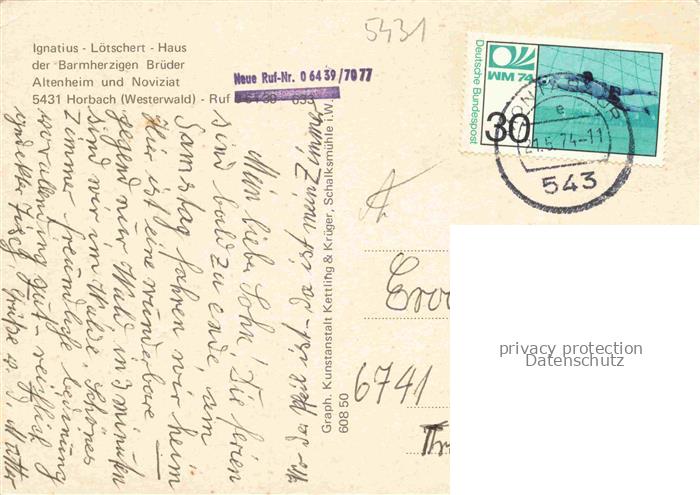 5431
Ignatius - Lötschert - Haus
der Barmherzigen Brüder
Altenheim und Noviziat
5431 Horbach (Westerwald) - Ruf
Neue Ruf-Nr. 0 64 39 / 70 77
Deutsche Bundespost
WM 74
30
21.5.74-11
e
543
wo der Pfeil ist - da ist mein Zimmer
Mein lieber Sohn! Die Ferien
sind bald zu ende, am
Samstag fahren wir heim
Hier ist eine wunderbare
gegend nur Wald in 3 minuten
sind wir im Walde. Schönes
Zimmer freundliche bedienung
Grüße
Mutter
Graph. Kunstanstalt Kettling & Krüger, Schalksmühle i.W.
608 50
6741
privacy protection
Datenschutz